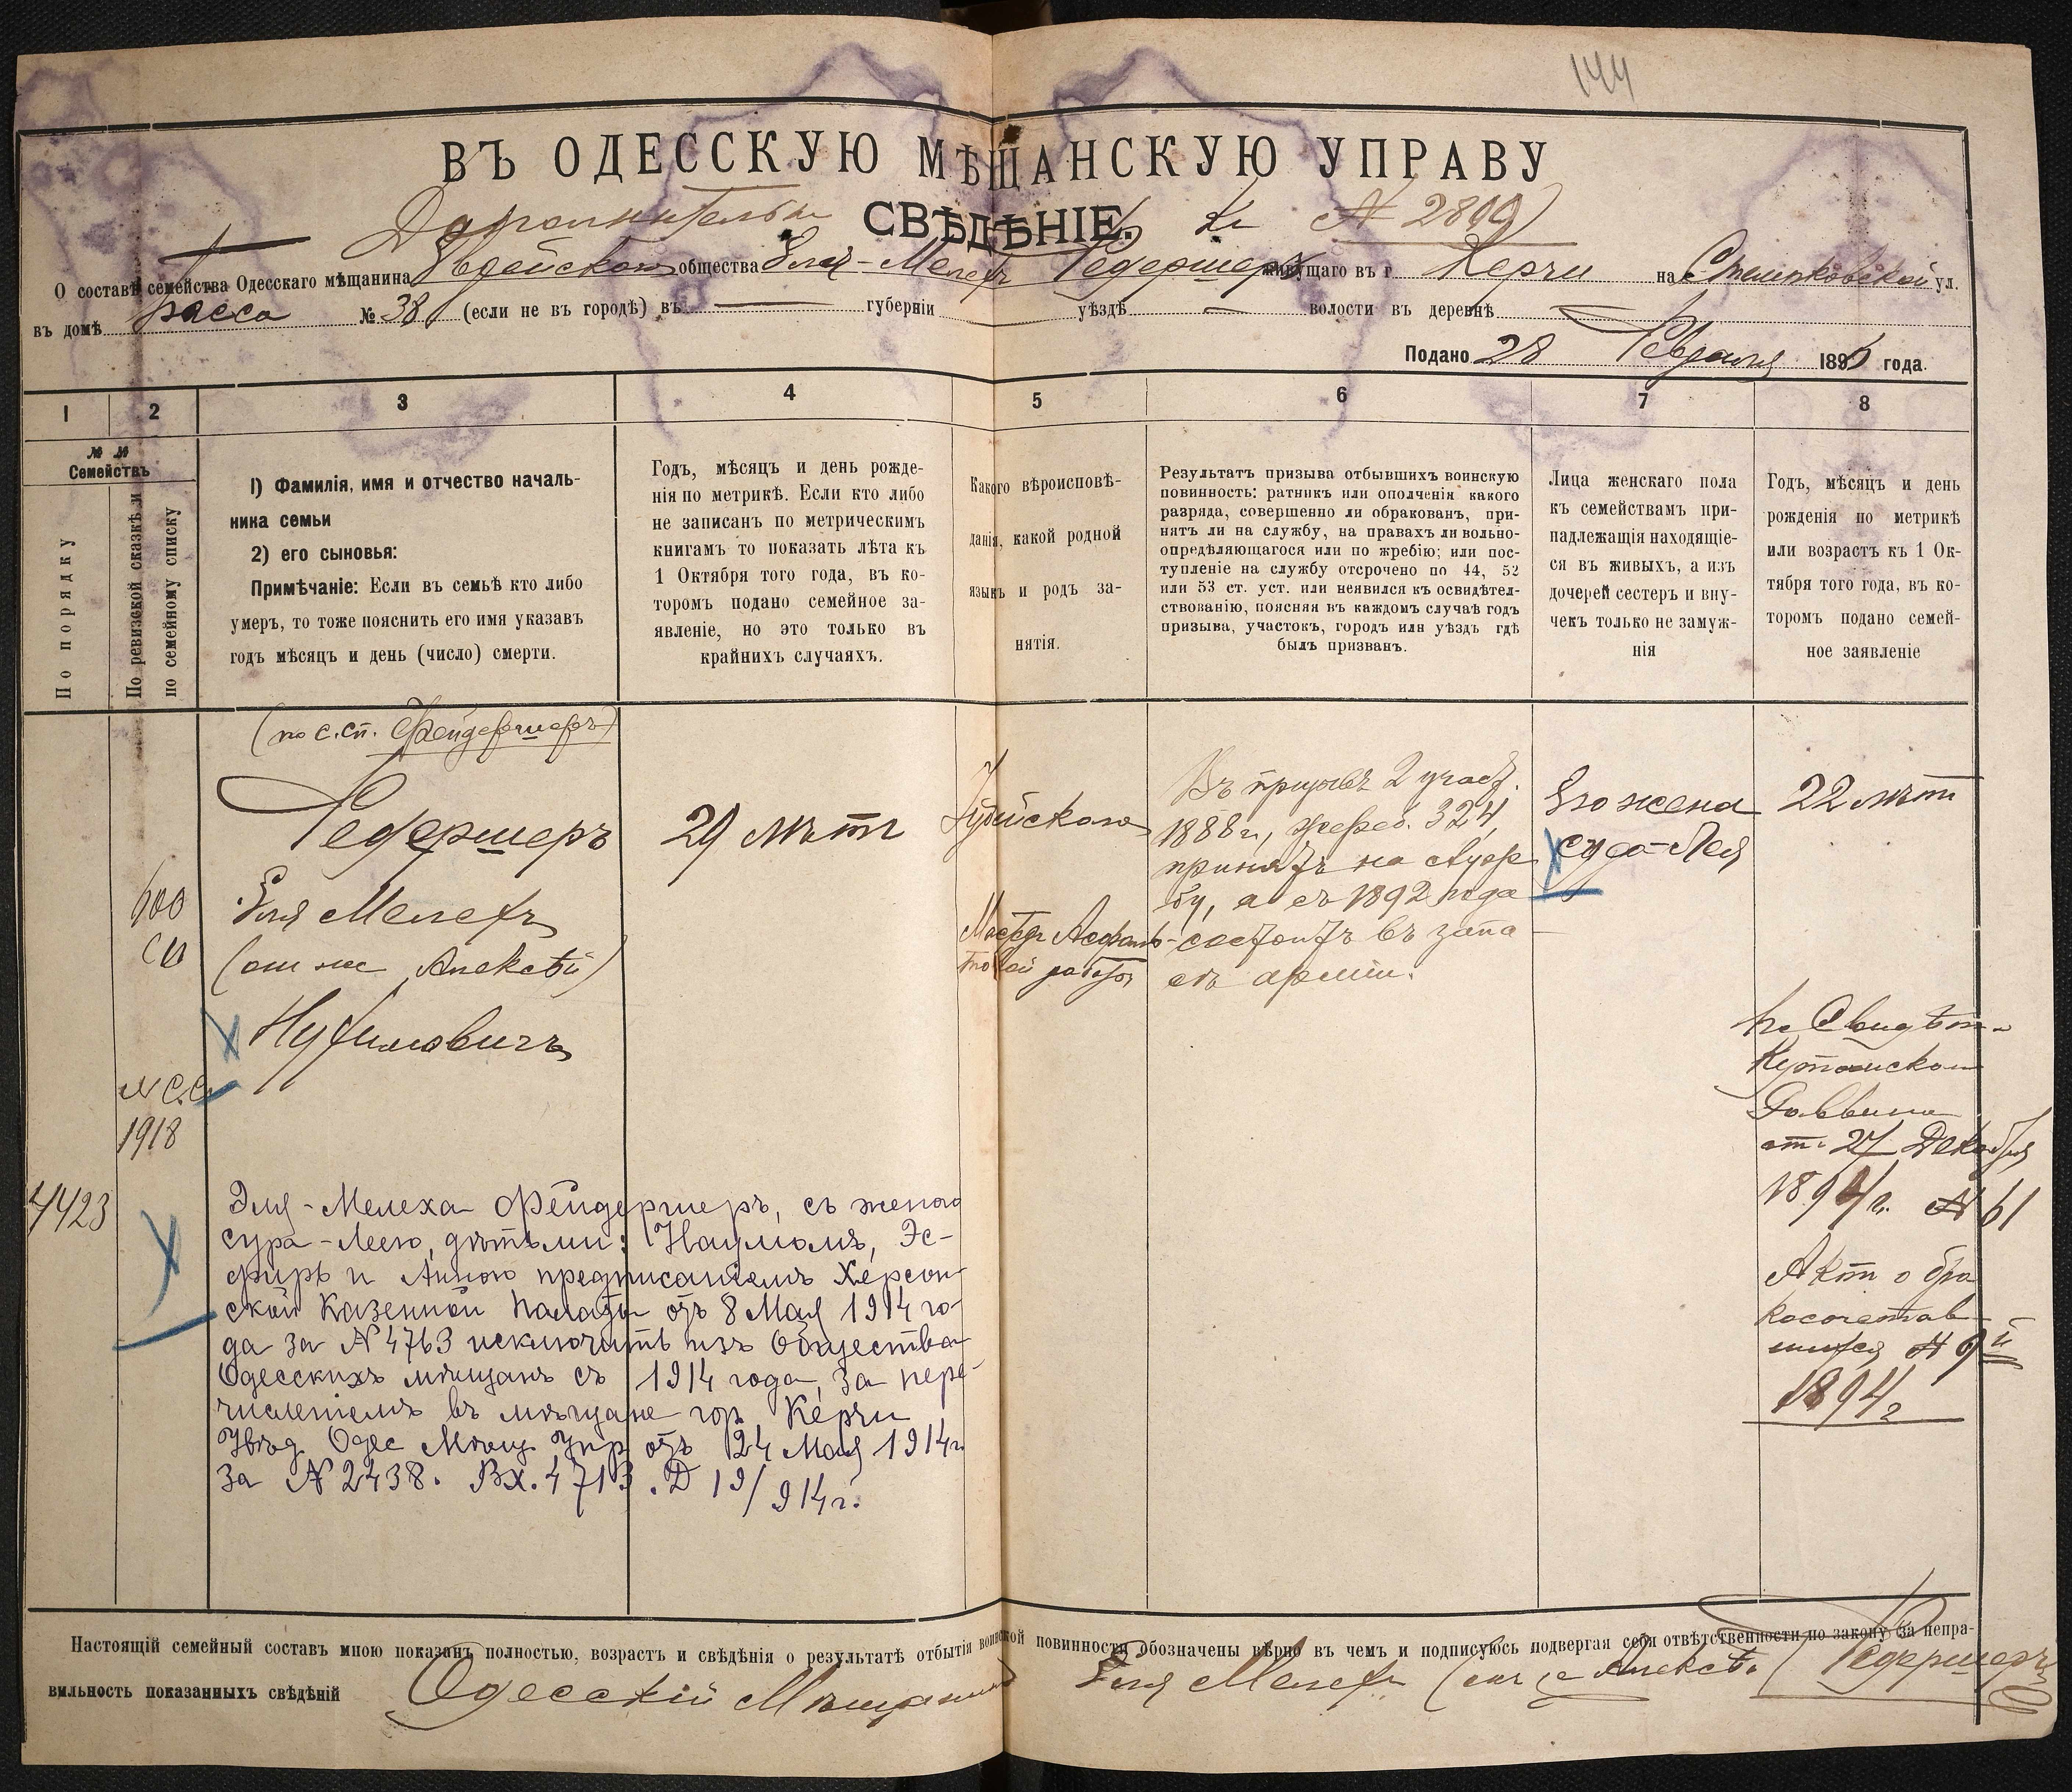 144
ВЪ ОДЕССКУЮ МѢЩАНСКУЮ УПРАВУ
СВѢДѢНІЕ.
О составѣ семейства Одесскаго мѣщанина Еврейскаго общества Еля-Мелехъ Федершеръ живущаго въ г. Керчи на ул.
въ домѣ Расса № 38 (если не въ городѣ) въ губерніи уѣздѣ волости въ деревнѣ
Подано 28 Февраля 1895 года.
1 2 3 4 5 6 7 8
№ №
Семействъ
По порядку
По ревизской сказкѣ и
по семейному списку
1) Фамилія, имя и отчество началь-
ника семьи
2) его сыновья:
Примѣчаніе: Если въ семьѣ кто либо
умеръ, то тоже пояснить его имя указавъ
годъ мѣсяцъ и день (число) смерти.
Годъ, мѣсяцъ и день рожде-
нія по метрикѣ. Если кто либо
не записанъ по метрическимъ
книгамъ то показать лѣта къ
1 Октября того года, въ ко-
торомъ подано семейное за-
явленіе, но это только въ
крайнихъ случаяхъ.
Какого вѣроисповѣ-
данія, какой родной
языкъ и родъ за-
нятія.
Результатъ призыва отбывшихъ воинскую
повинность: ратникъ или ополченія какого
разряда, совершенно ли обракованъ, при-
нятъ ли на службу, на правахъ ли вольно-
опредѣляющагося или по жребію; или пос-
тупленіе на службу отсрочено по 44, 52
или 53 ст. уст. или неявился къ освидѣтел-
ствованію, поясняя въ каждомъ случаѣ годъ
призыва, участокъ, городъ или уѣздъ гдѣ
былъ призванъ.
Лица женскаго пола
къ семействамъ при-
надлежащія находящіе-
ся въ живыхъ, а изъ
дочерей сестеръ и вну-
чекъ только не замуж-
нія
Годъ, мѣсяцъ и день
рожденія по метрикѣ
или возрастъ къ 1 Ок-
тября того года, въ ко-
торомъ подано семей-
ное заявленіе
(по с.сп. Фейдершеръ)
Федершеръ
Еля Мелехъ
(онъ же Алексѣй)
Нухимовичъ
600
№ С.С.
1918
29 лѣтъ
Іудейскаго
Мастеръ Асфаль-
товой работы
Въ призывѣ 2 участ.
1888 г., жереб. 324,
принятъ на служ
бу, а съ 1892 года
состоитъ въ запа
съ арміи.
Его жена
Сура-Лея
22 лѣтъ
По Свидѣт.
Кутаискаго
Раввина
отъ 27 Декабря
1894 г. № 61
Актъ о бра
косочетав
шихся № 9й
1894 г.
4423
Эля-Мелеха Фейдершеръ, съ женою
Сура-Леею, дѣтьми: Наумомъ, Эс-
фирь и Анною предписаніемъ Херсон-
ской Казенной Палаты отъ 8 Мая 1914 го-
да за № 4763 исключить изъ Общества
Одесскихъ мѣщанъ съ 1914 года, за пере-
численіемъ въ мѣщане гор. Керчи
Увѣд. Одес Мѣщ Упр отъ 24 Мая 1914 г.
за № 2438. Вх. 4713. Д 19/914 г.
Настоящій семейный составъ мною показанъ полностью, возрастъ и свѣдѣнія о результатѣ отбытія воинской повинности обозначены вѣрно въ чемъ и подписуюсь подвергая себя отвѣтственности по закону за непра-
вильность показанныхъ свѣдѣній Одесскій Мѣщанинъ Еля Мелехъ Федершеръ